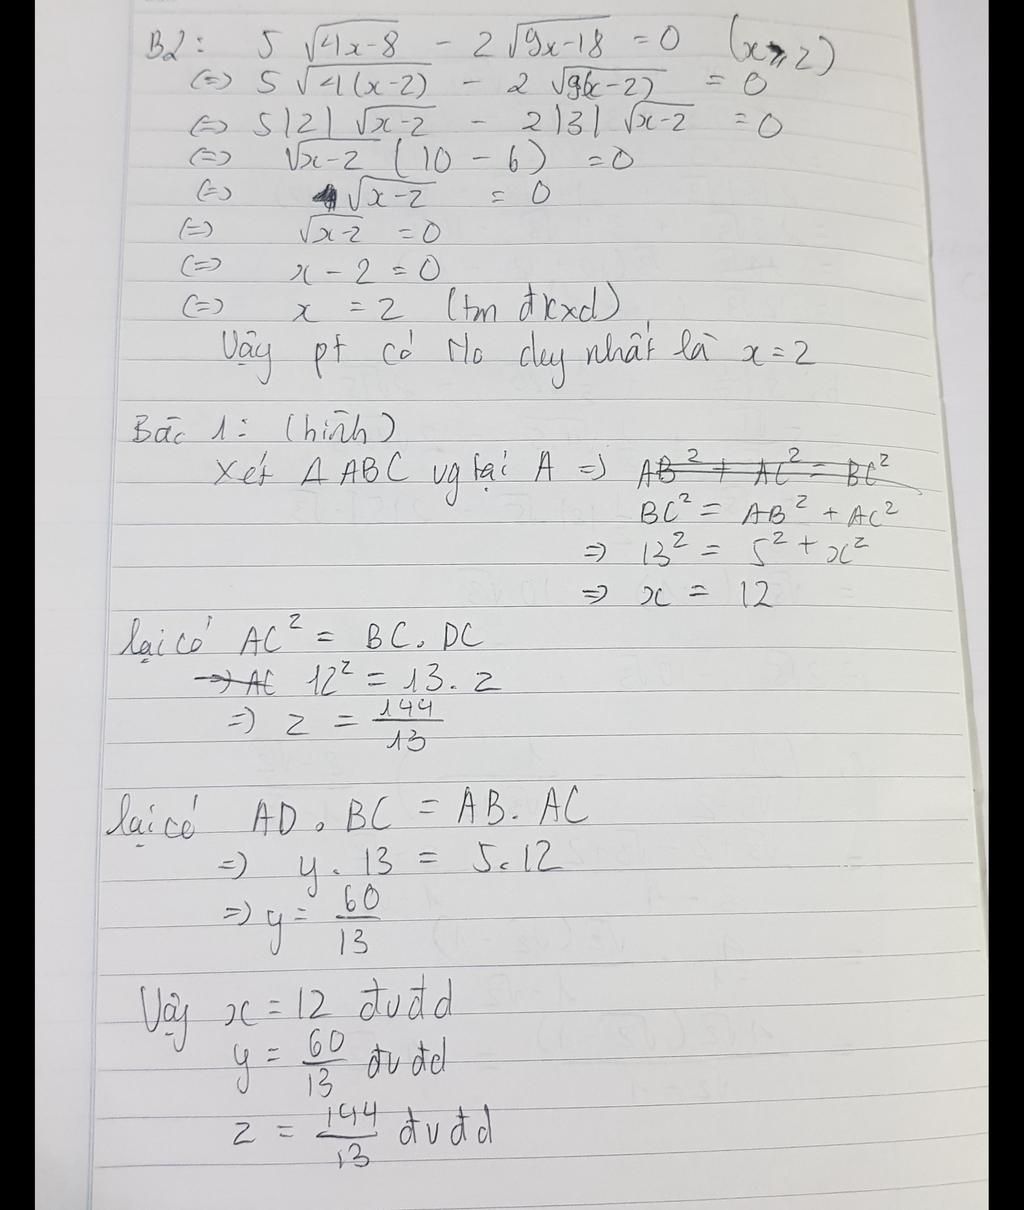 B2: 5 √4x-8 - 2 √9x-18 = 0 (x ⩾ 2)
(=) 5 √4(x-2) - 2 √9(x-2) = 0
(=) 5|2| √x-2 - 2|3| √x-2 = 0
(=) √x-2 (10 - 6) = 0
(=) 4√x-2 = 0
(=) √x-2 = 0
(=) x - 2 = 0
(=) x = 2 (tm đkxd)
Vậy pt có No duy nhất là x = 2
Bài 1: (hình)
Xét Δ ABC vg tại A => AB² + AC² = BC²
BC² = AB² + AC²
=> 13² = 5² + x²
=> x = 12
lại có AC² = BC. DC
=> AC 12² = 13. z
=) z = 144/13
lại có AD. BC = AB. AC
=) y. 13 = 5.12
=) y = 60/13
Vậy x = 12 đvđd
y = 60/13 đvđd
z = 144/13 đvđd